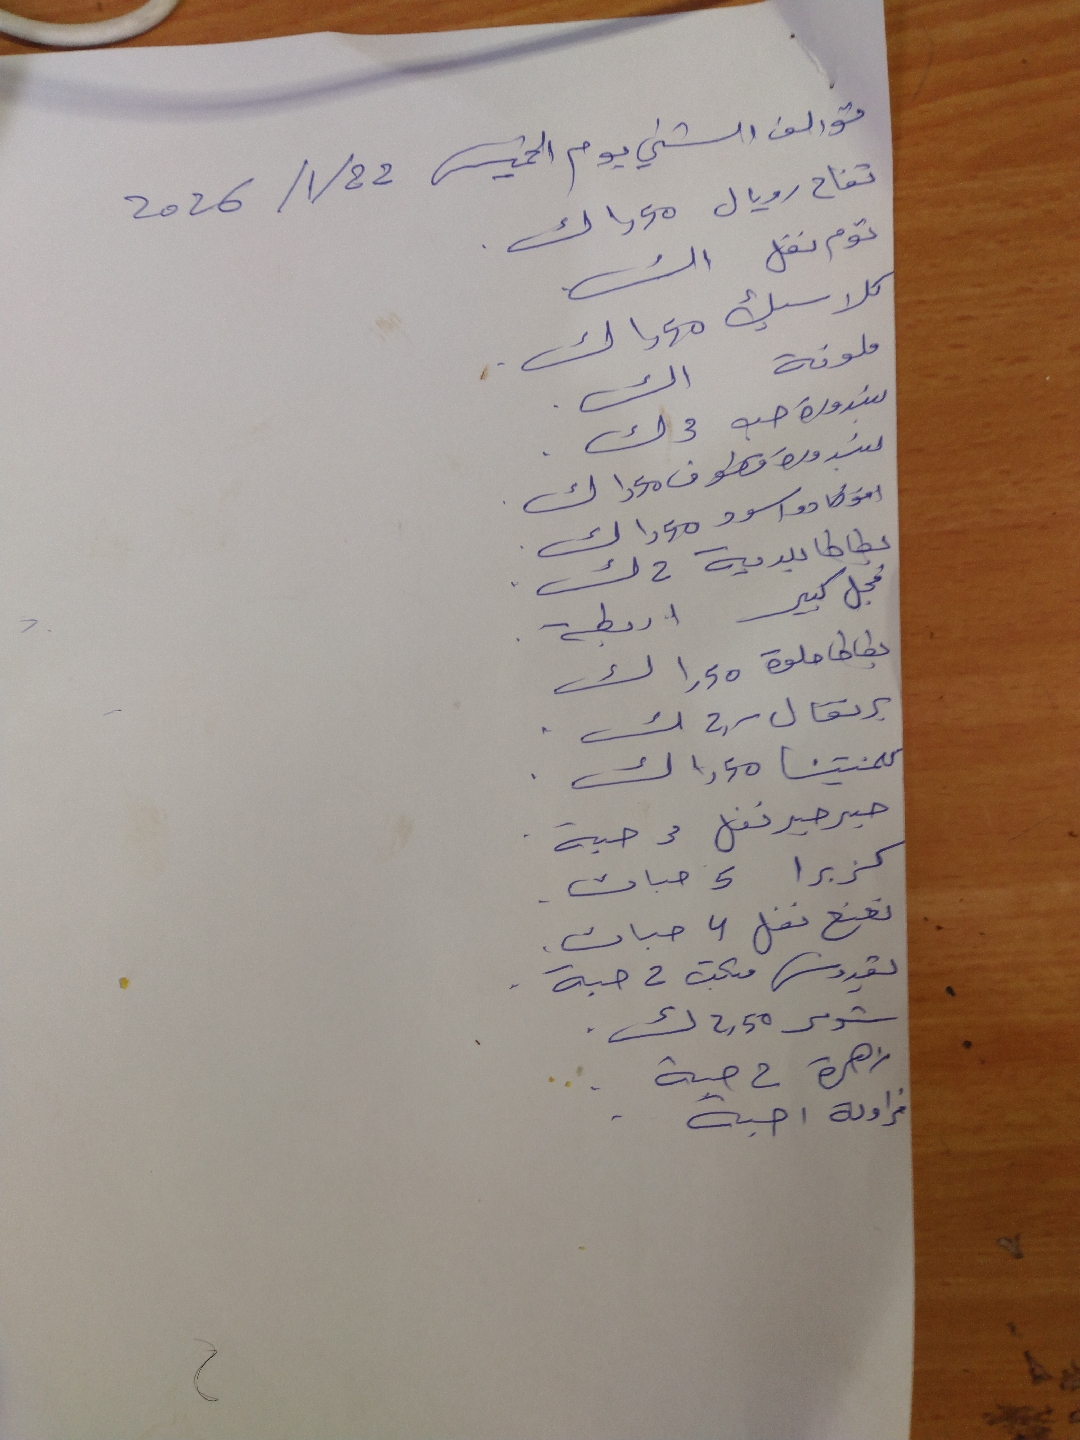 توالف الشني يوم الخميس 22/1/2026
تفاح رويال 1,50 ك
توم نفل 1 ك
كلاسيك 1,50 ك
ملونة 1 ك
بندورة حب 3 ك
بندورة قطوف 1,50 ك
افوكادو اسود 1,50 ك
بطاطا بلدية 2 ك
فجل كبير 1 ربطة
بطاطا حلوة 1,50 ك
برتقال ص 2 ك
كلمنتينا 1,50 ك
جبرجير نفل 3 حبة
كزبرا 5 حبات
نعنع نفل 4 حبات
بقدونس مكبت 2 حبة
شومر 2,50 ك
زهرة 2 حبة
فراولة 1 حبة